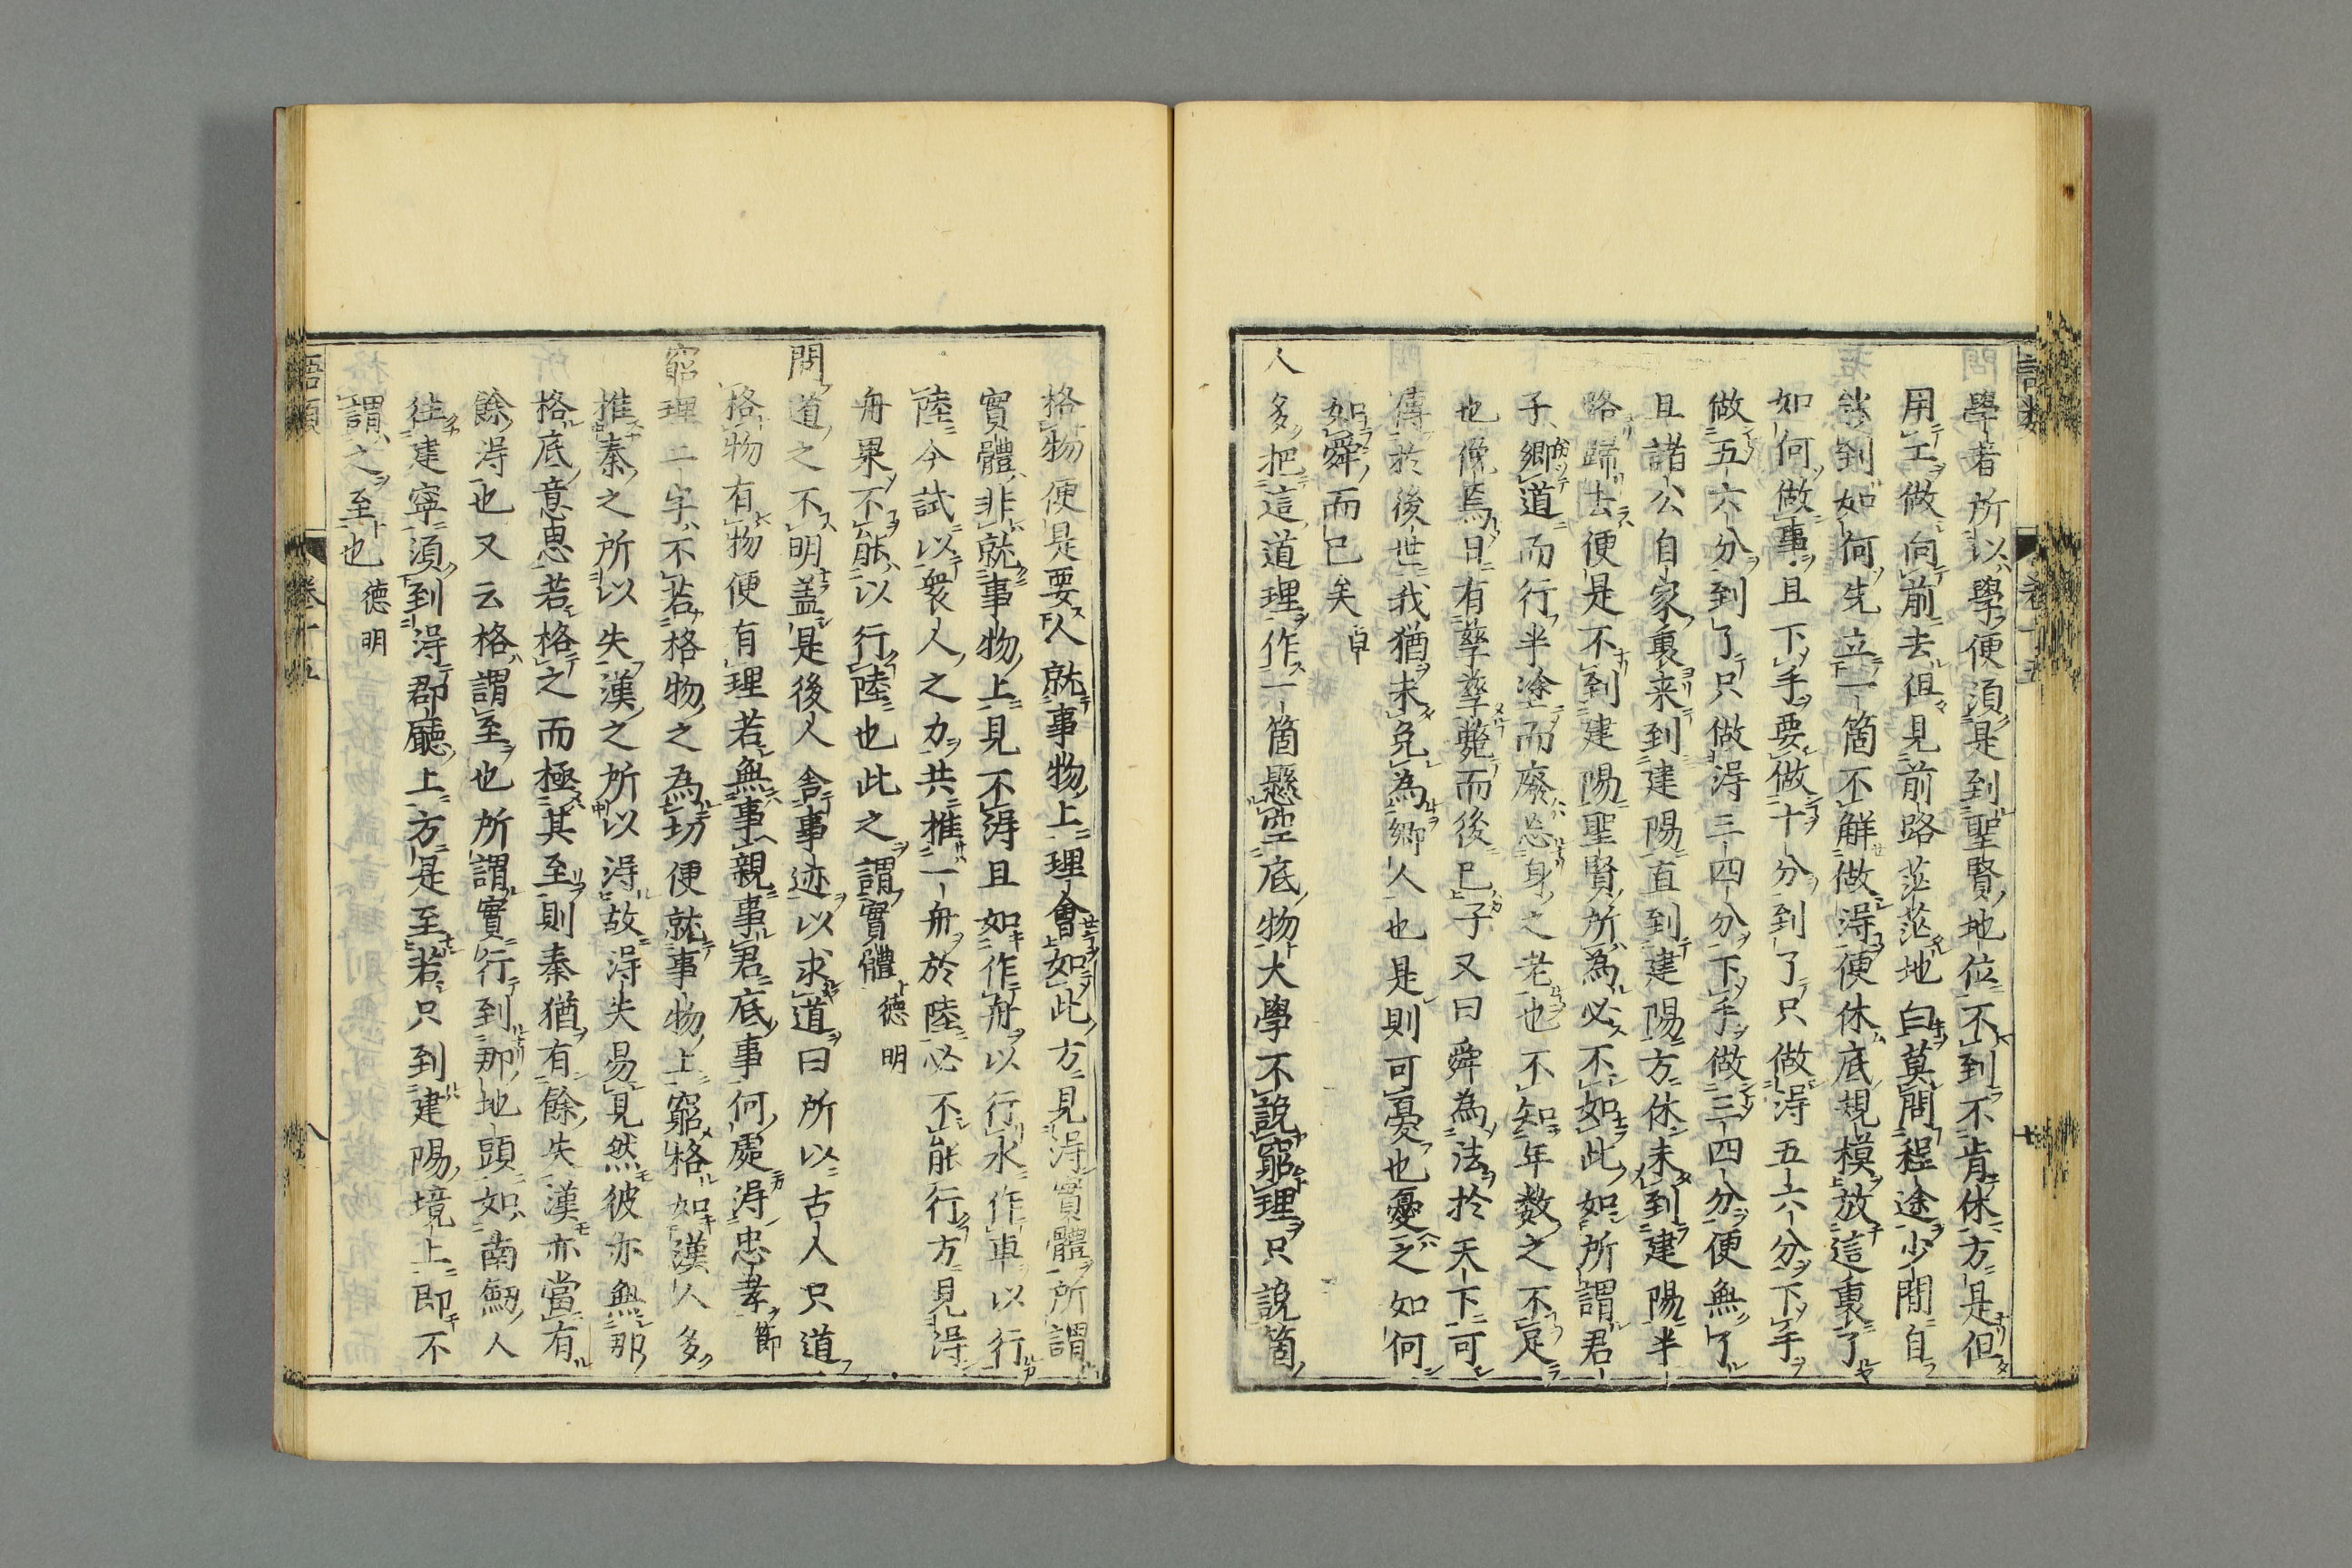 學者所以學便須是到聖賢地位不到不肯休方是但
用工做向前去但見前路茫茫地白莫問程途少間自
能到如何先立一箇不解做得便休底規模放這裏了
如何做事且下手要做十分到了只做得五六分下手
做五六分到了只做得三四分下手做三四分便無了
且諸公自家裏来到建陽直到建陽方休未到建陽半
路歸去便是不到建陽聖賢所為必不如此如所謂君
子郷道而行半塗而廢忘身之老也不知年数之不足
也俛焉日有孳孳斃而後已子又曰舜為法於天下可
傳於後世我猶未免為郷人也是則可憂也憂之如何
如舜而已矣 卓
人多把這道理作一箇懸空底物大學不說窮理只說箇
格物便是要人就事物上理會如此方見得實體所謂
實體非就事物上見不得且如作舟以行水作車以行
陸今試以衆人之力共推一舟於陸必不能行方見得
舟果不能以行陸也此之謂實體 德明
問道之不明盖是後人舎事迹以求道曰所以古人只道
格物有物便有理若無事親事君底事何處得忠孝 節
窮理二字不若格物之為切便就事物上窮格如漢人多
推秦之所以失漢之所以得故得失易見然彼亦無那
格底意思若格之而極其至則秦猶有餘失漢亦當有
餘得也又云格謂至也所謂實行到那地頭如南劒人
往建寧須到得郡廳上方是至若只到建陽境上即不
謂之至也 德明
語類 卷十五